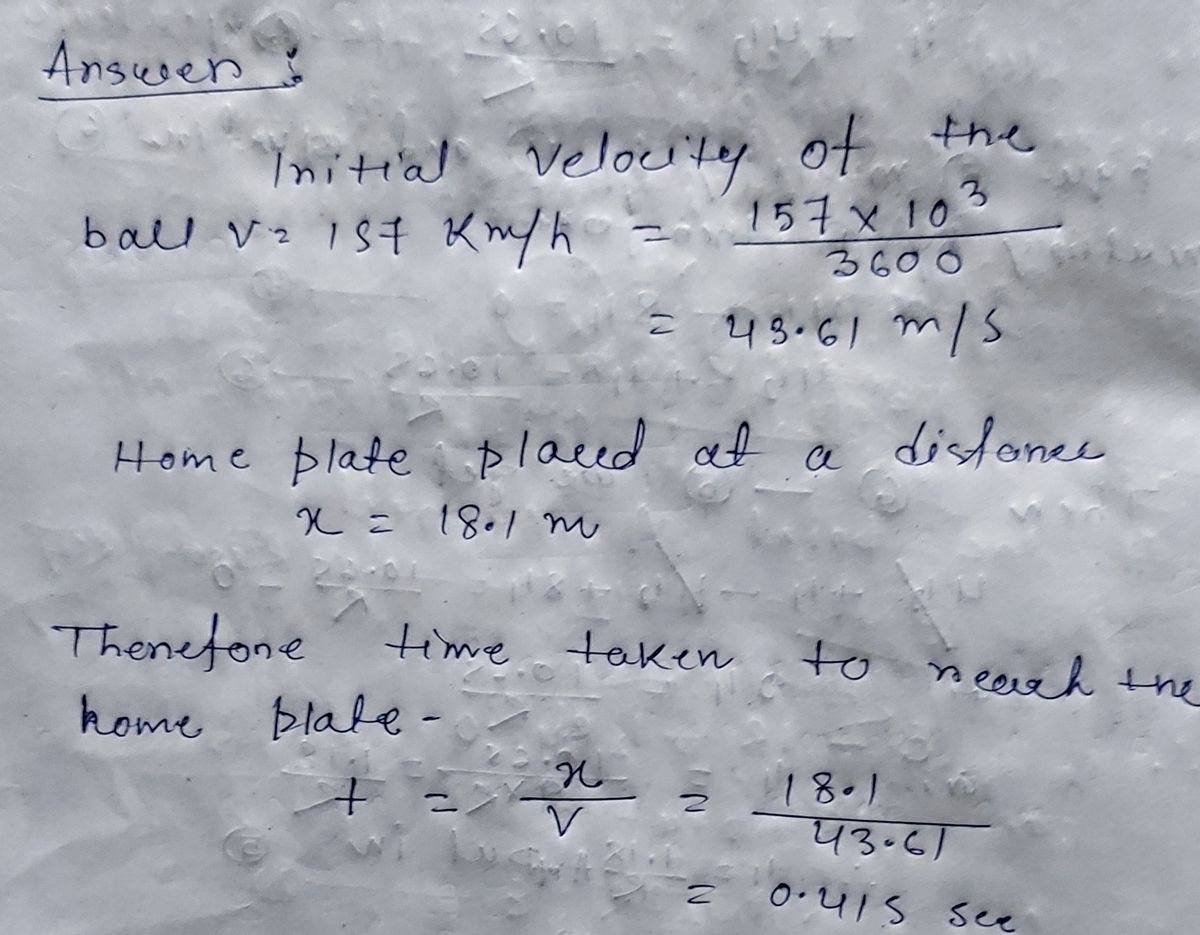 Answer :
Initial velocity of the
ball v = 157 Km/h = 157 × 10³ / 3600
= 43.61 m/s
Home plate placed at a distance
x = 18.1 m
Therefore time taken to reach the
home plate -
t = x / v = 18.1 / 43.61
= 0.415 sec